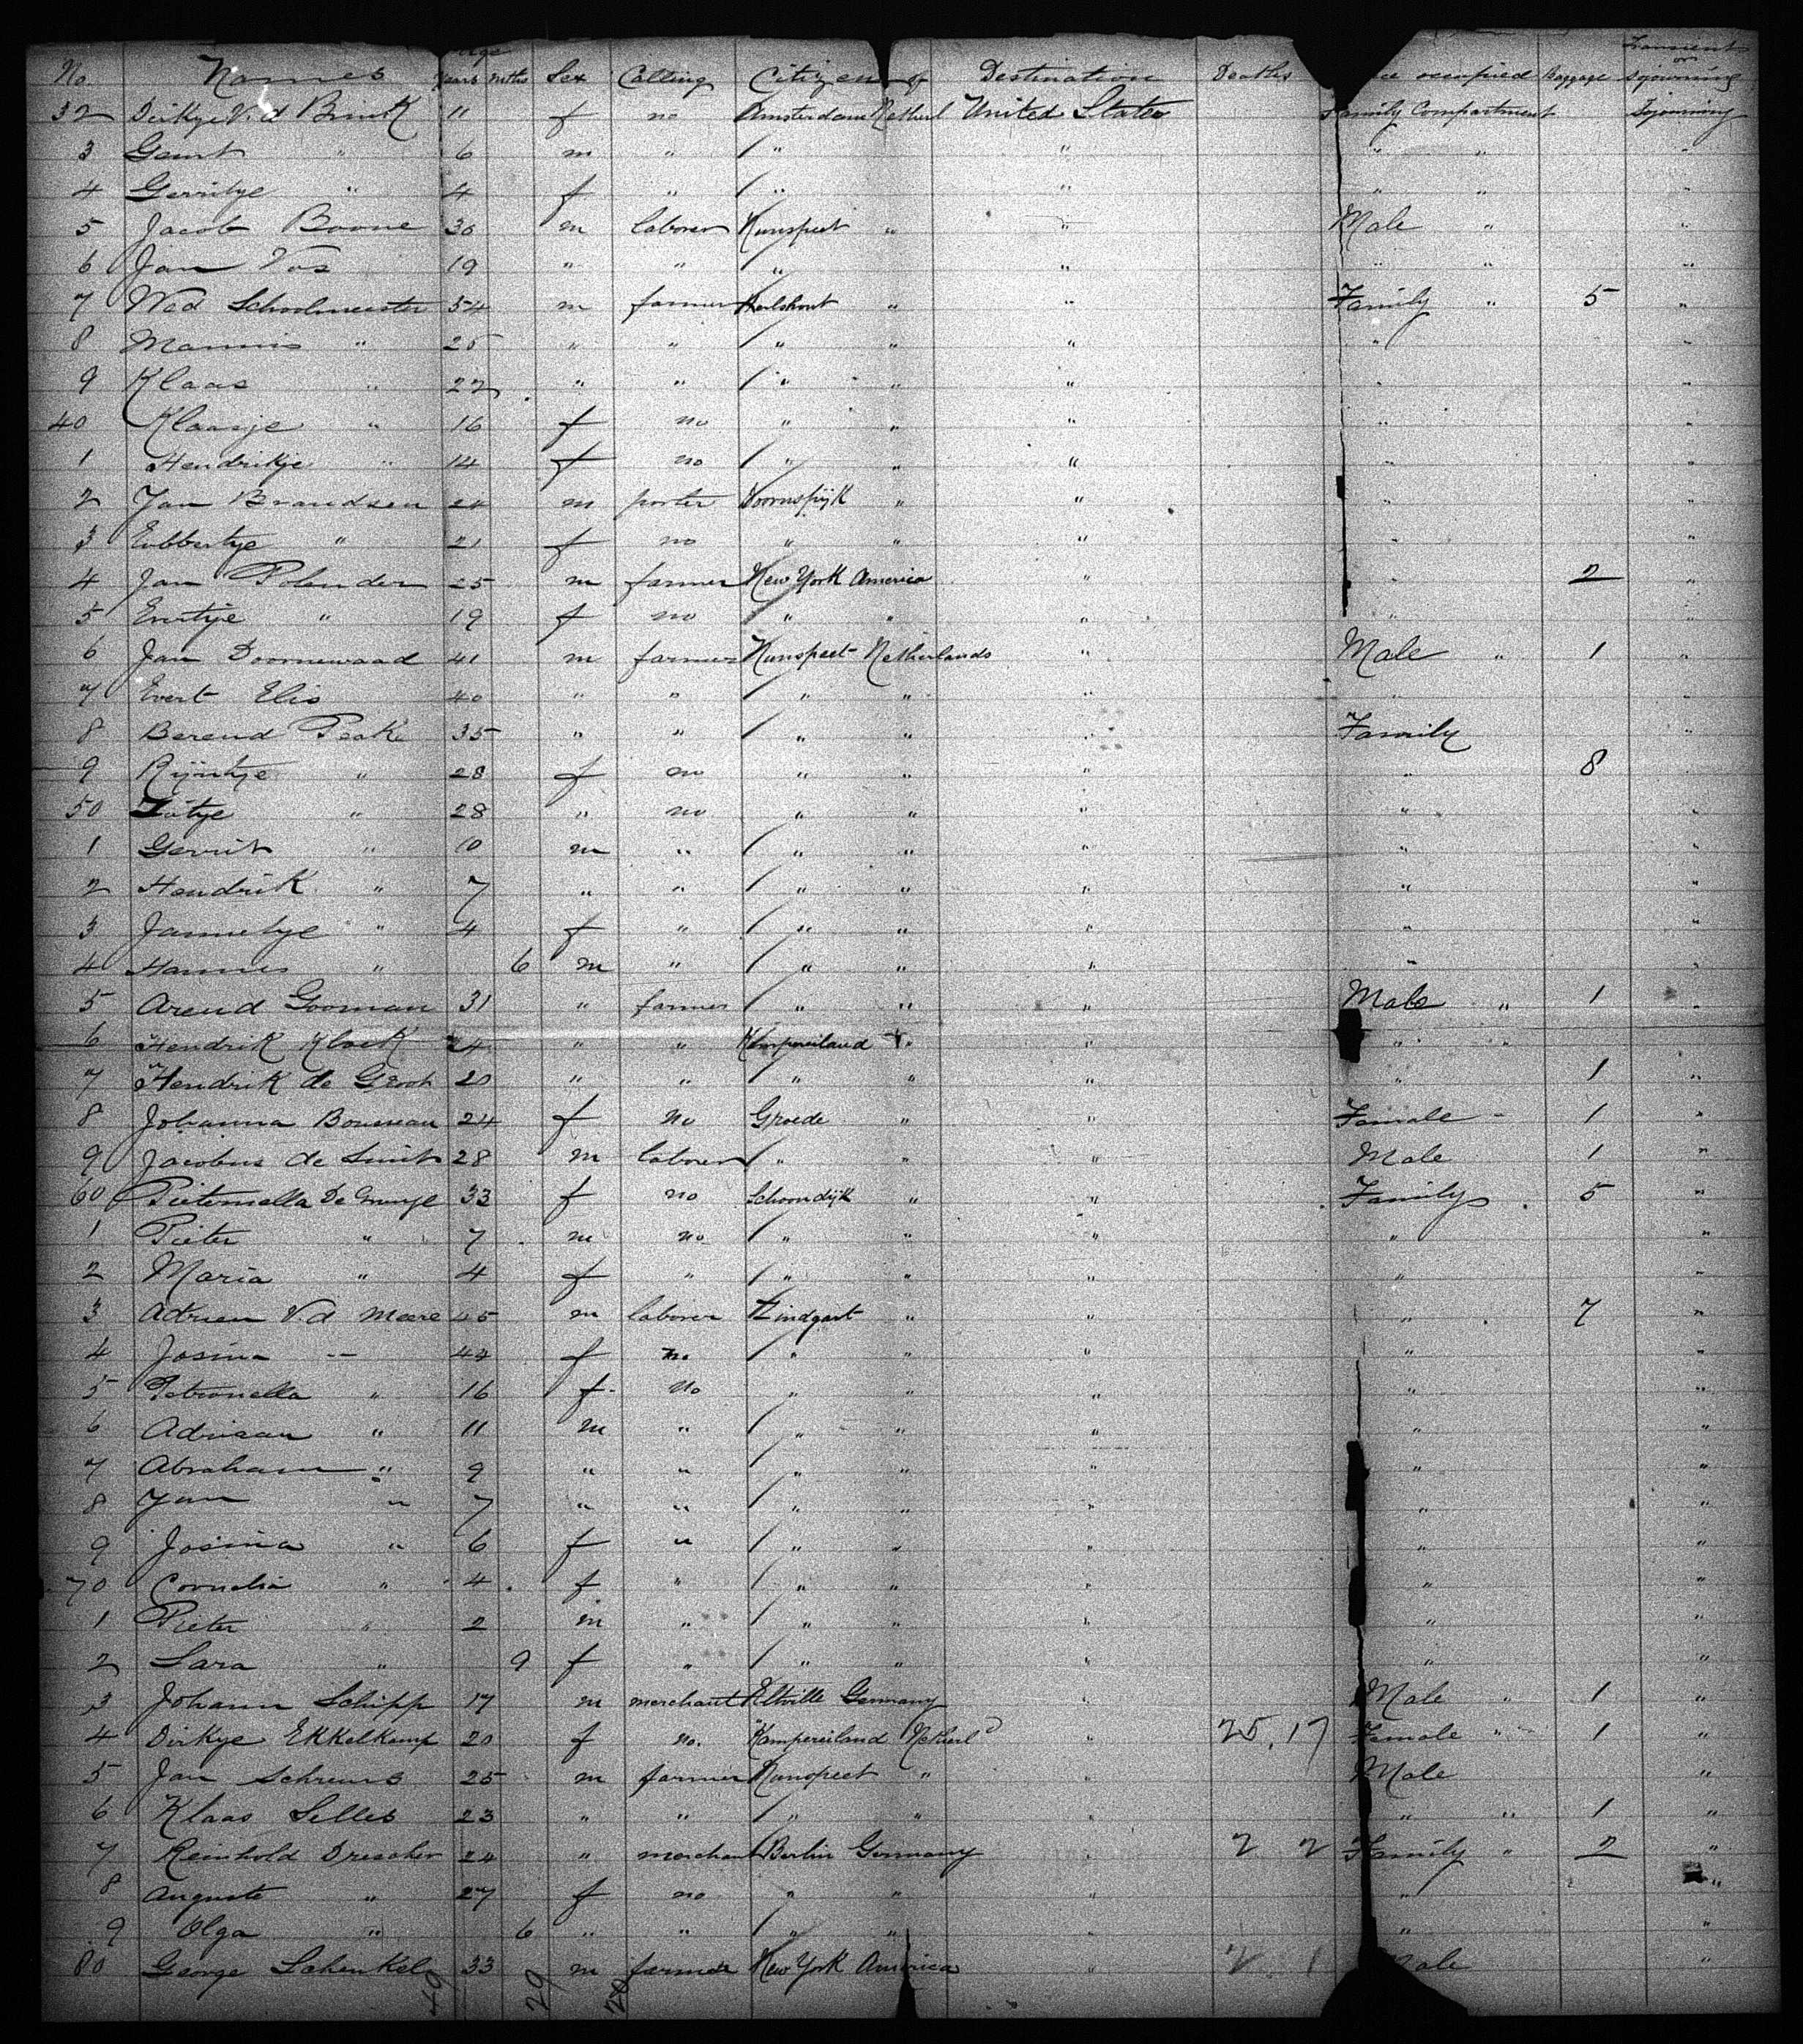 Age
No. Names Years mths Sex Calling Citizen of Destination Deaths occupied Baggage Transient or Sojourning
32 Dirkye V.d Brink 11 f no Amsterdam Netherl United States Family Compartment Sojourning
3 Geurt " 6 m " " " " " "
4 Gerritye " 4 f " " " " " "
5 Jacob Boone 30 m laborer Nunspeet " " Male " "
6 Jan Vos 19 " " " " " " "
7 Wed Schoolmeester 54 m farmer " " Family " 5 "
8 Mannis " 25 " " " " " " "
9 Klaas " 22 " " " " " " "
40 Klaasje " 16 f no " " " " "
1 Hendrikje " 14 f no " " " " "
2 Jan Brandsen 24 m porter Doornspijk " " " "
3 Eubbertye " 21 f no " " " " "
4 Jan Polender 25 m farmer New York America " " 2 "
5 Evertje " 19 f no " " " " "
6 Jan Doornewaad 41 m farmer Nunspeet Netherlands " Male " 1 "
7 Evert Elis 40 " " " " " " "
8 Berend Peak 35 " " " " " Family "
9 Rijntje " 28 f no " " " " 8
50 " 28 " no " " " " "
1 Gerrit " 10 m " " " " " "
2 Hendrik " 7 " " " " " " "
3 Jannetye " 4 f " " " " " "
4 Hannes " 6 m " " " " " "
5 Arend Gooman 31 " farmer " " " Male " 1 "
6 Hendrik Kloek 24 " " Kampereiland " " " " "
7 Hendrik de Groot 20 " " " " " " 1 "
8 Johanna 24 f no Groede " " Female " 1 "
9 Jacobus de Smit 28 m laborer " " " Male 1 "
60 De 33 f no Schoondijk " " Family 5 "
1 Pieter " 7 m no " " " " "
2 Maria " 4 f " " " " " "
3 Adrien V.d Meere 45 m laborer " " " 7 "
4 Josina " 44 f no " " " " "
5 Petronella " 16 f no " " " " "
6 Adriaan " 11 m " " " " " "
7 Abraham " 9 " " " " " " "
8 Jan " 7 " " " " " " "
9 Josina " 6 f " " " " " "
70 Cornelia " 4 f " " " " " "
1 Pieter " 2 m " " " " " "
2 Sara " 9 f " " " " " "
3 Johann Schipp 17 m merchant Eltville Germany " Male " 1 "
4 Dirkye Ekkelkamp 20 f no. Kampereiland Netherld " 25. 17 Female " 1 "
5 Jan Schreurs 25 m farmer Nunspeet " " Male "
6 Klaas Selles 23 " " " " " " " 1 "
7 Reinhold Drescher 24 " merchant Berlin Germany " 2 2 Family " 2 "
8 Auguste " 27 f no " " " " "
9 Olga " 6 " " " " " " "
80 George Schenkel 33 m farmer New York America " 2. 1 Male "
49 29 20